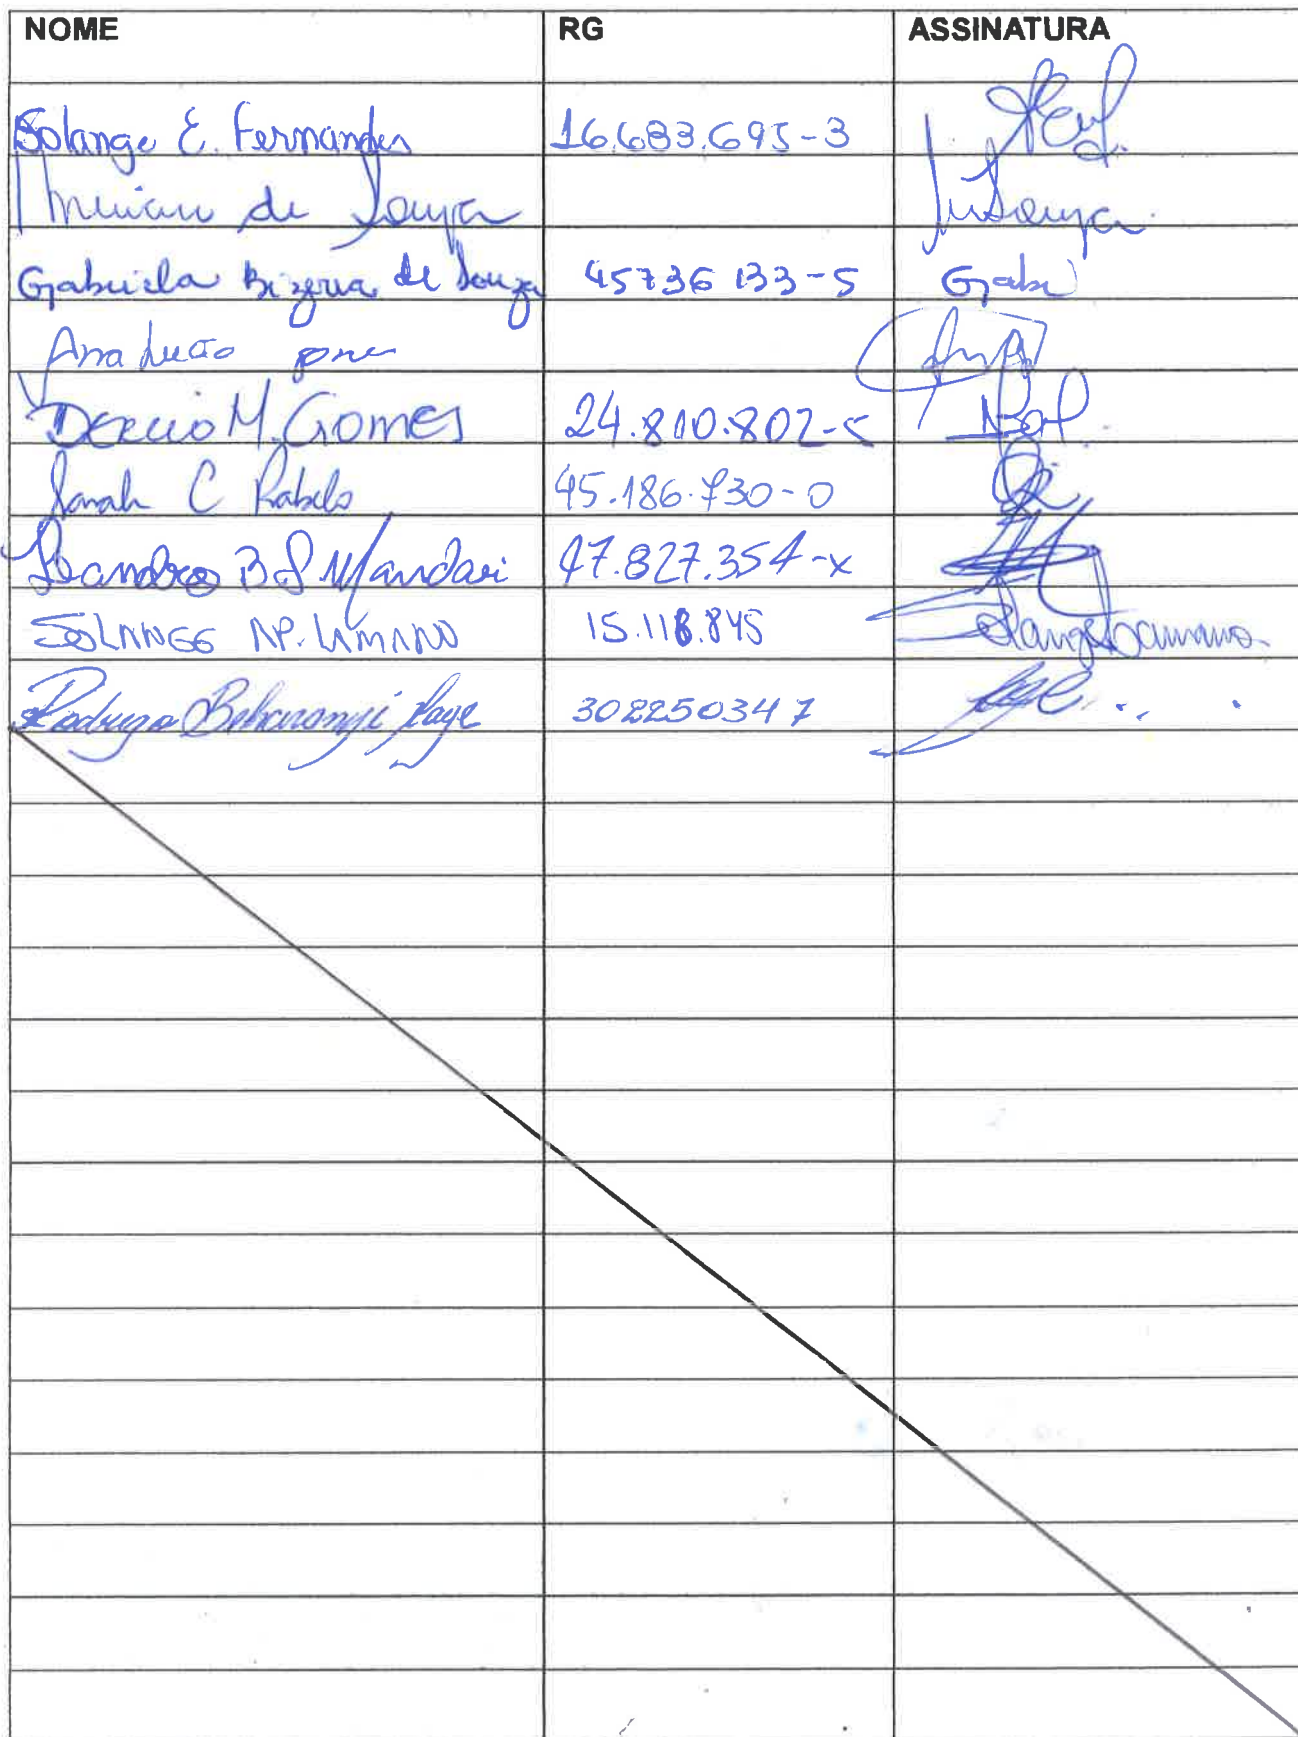 NOME RG ASSINATURA
Solange E. Fernandes 16.683.695-3
de Souza Souza
Gabriela Bizerra de Souza 45736133-5 Gabi
Ana
Dercio M. Gomes 24.810.802-5
Sarah C Rabelo 45.186.730-0
Leandro B S Mandari 47.827.354-x
SOLANGE AP. LAMANO 15.118.845 Solange Lamano
Rodrigo 302250347